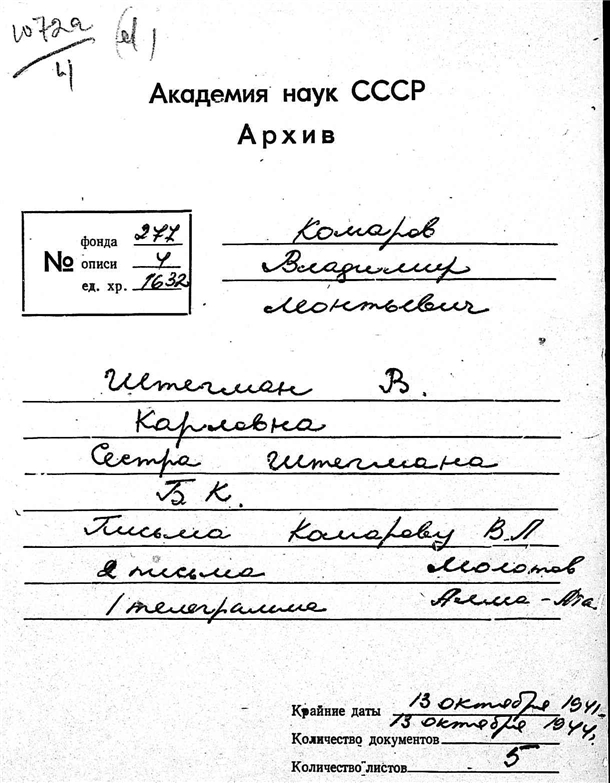 1072а (4)
4
Академия наук СССР
Архив
№
фонда 277
описи 4
ед. хр. 1632
Комаров
Владимир
Леонтьевич
Штегман В.
Карловна
Сестра Штегмана
Б К.
Письма Комарову В Л
2 письма Молотов
1 телеграмма Алма-Ата
Крайние даты 13 октября 1941-
13 октября 1944.
Количество документов
Количество листов 5